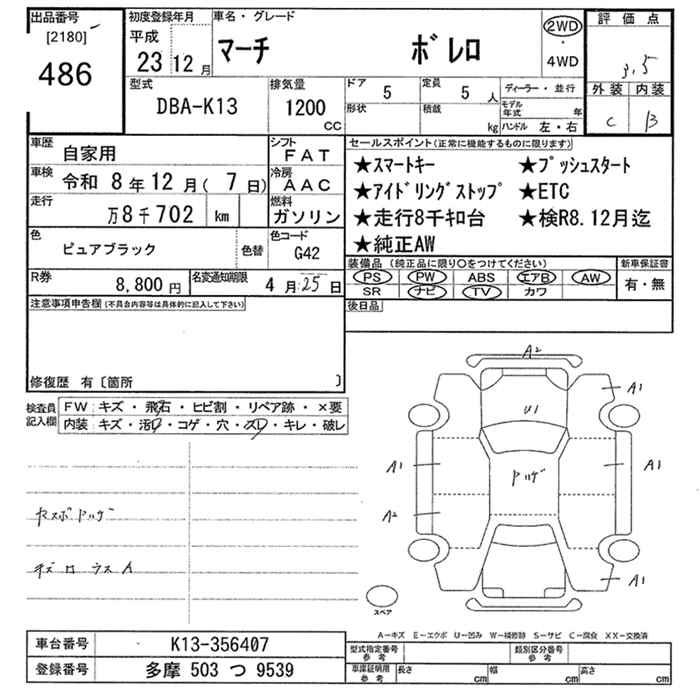 出品番号
[2180]
486
初度登録年月
平成
23 12 月
車名・グレード
マーチ ボレロ
2WD
・
4WD
評価点
3.5
型式
DBA-K13
排気量
1200
CC
ドア
5
定員
5 人
ディーラー・並行
形状
積載
kg
モデル年式 年
ハンドル 左・右
外装 内装
C B
車歴
自家用
シフト
FAT
車検
令和 8年12月( 7日)
冷房
AAC
走行
万8千702 km
燃料
ガソリン
色
ピュアブラック
色替
色コード
G42
R券
8,800円
名変通知期限
4月25日
セールスポイント(正常に機能するものに限ります)
★スマートキー ★プッシュスタート
★アイドリングストップ ★ETC
★走行8千キロ台 ★検R8.12月迄
★純正AW
装備品(純正品に限り○をつけてください)
PS PW ABS エアB AW
SR ナビ TV カワ
新車保証書
有・無
後日品
注意事項申告欄(不具合内容等は具体的に記入して下さい)
修復歴 有〔箇所 〕
検査員記入欄
FW: キズ・飛石・ヒビ割・リペア跡・×要
内装: キズ・汚れ・コゲ・穴・スレ・キレ・破レ
A2
A1
A1
U1
A1
A1
ハゲ
A2
A1
スペア
A-キズ E-エクボ U-凹み W-補修跡 S-サビ C-腐食 XX-交換済
車台番号
K13-356407
登録番号
多摩 503 つ 9539
型式指定番号
参考
類別区分番号
参考
車庫証明用
参考
長さ cm
幅 cm
高さ cm